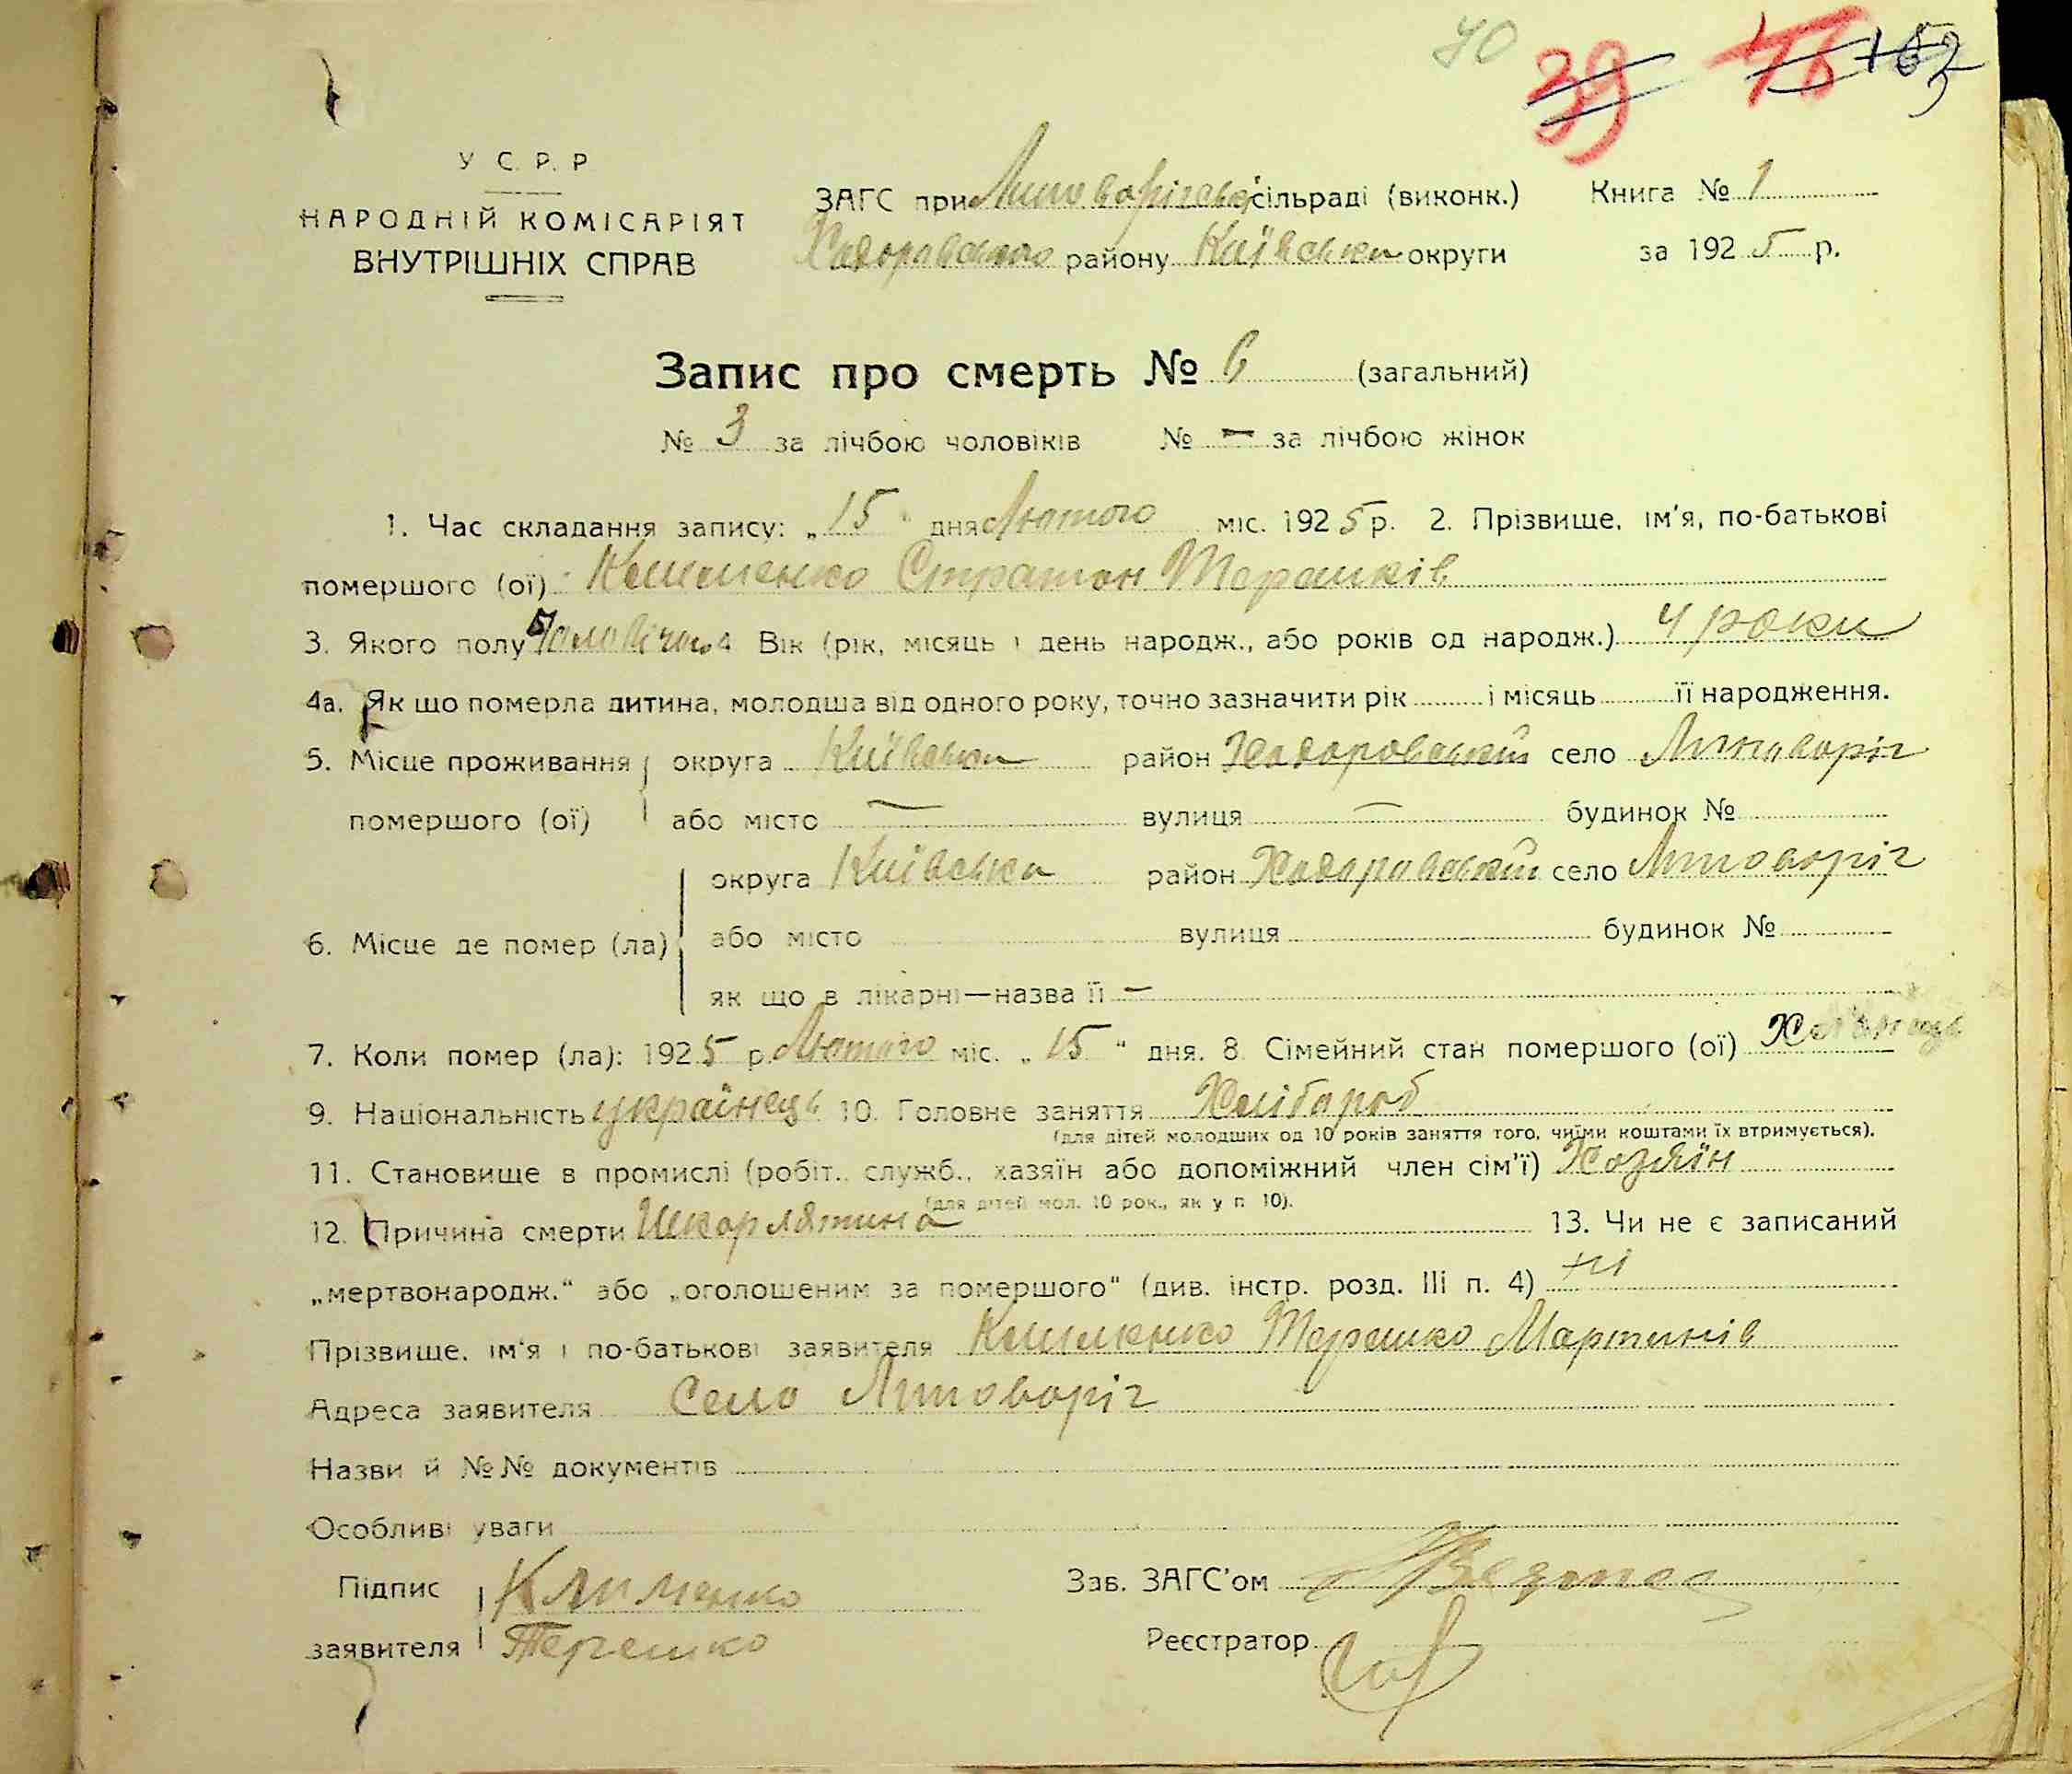 40 39 46 163
У С. Р. Р
НАРОДНІЙ КОМІСАРІЯТ
ВНУТРІШНІХ СПРАВ
ЗАГС при Литоварізськ сільраді (виконк.) Книга № 1
Ходоровського району Київська округи за 1925 р.
Запис про смерть № 6 (загальний)
№ 3 за лічбою чоловіків № — за лічбою жінок
1. Час складання запису: „15" дня Лютого міс. 1925 р. 2. Прізвище, ім'я, по-батькові
помершого (ої) Клименко Стратон Терешків
3. Якого полу Чоловічого 4 Вік (рік, місяць і день народж., або років од народж.) 4 роки
4а. Як що померла дитина, молодша від одного року, точно зазначити рік і місяць її народження.
5. Місце проживання округа Київська район Ходоровський село Литоваріг
помершого (ої) або місто — вулиця — будинок №
округа Київська район Ходоровський село Литоворіг
6. Місце де помер (ла) або місто вулиця будинок №
як що в лікарні—назва її —
7. Коли помер (ла): 1925 р. Лютого міс. „15" дня. 8. Сімейний стан помершого (ої)
9. Національність українець 10. Головне заняття Хлібороб
(для дітей молодших од 10 років заняття того, чиїми коштами їх втримується).
11. Становище в промислі (робіт., служб., хазяїн або допоміжний член сім'ї) Хозяїн
(для дітей мол. 10 рок., як у п 10).
12. Причина смерти Шкорлятина 13. Чи не є записаний
„мертвонародж." або „оголошеним за помершого" (див. інстр. розд. III п. 4) ні
Прізвище, ім'я і по-батькові заявителя Клименко Терешко Мартинів
Адреса заявителя Село Литоворіг
Назви й №№ документів
Особливі уваги
Підпис Клименко Зав. ЗАГС'ом
заявителя Терешко Реєстратор